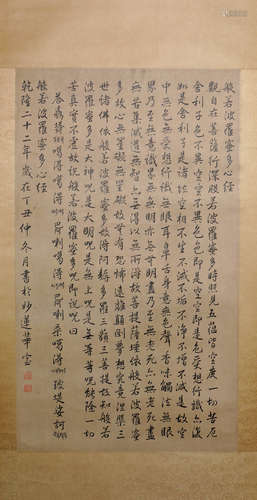 般若波羅密多心經
觀自在菩薩行深般若波羅密多時照見五蘊皆空度一切苦厄
舍利子色不異空空不異色色即是空空即是色受想行識亦復
如是舍利子是諸法空相不生不滅不垢不淨不增不減是故空
中無色無受想行識無眼耳鼻舌身意無色聲香味觸法無眼
界乃至無意識界無無明亦無無明盡乃至無老死亦無老死盡
無苦集滅道無智亦無得以無所得故菩提薩埵依般若波羅密
多故心無罣礙無罣礙故無有恐怖遠離顛倒夢想究竟涅槃三
世諸佛依般若波羅密多故得阿耨多羅三藐三菩提故知般若
波羅密多是大神咒是大明咒是無上咒是無等等咒能除一切
苦真實不虛故說般若波羅密多咒即說咒曰
般若波羅密多心經
乾隆二十二年歲在丁丑仲冬月書於妙蓮華室